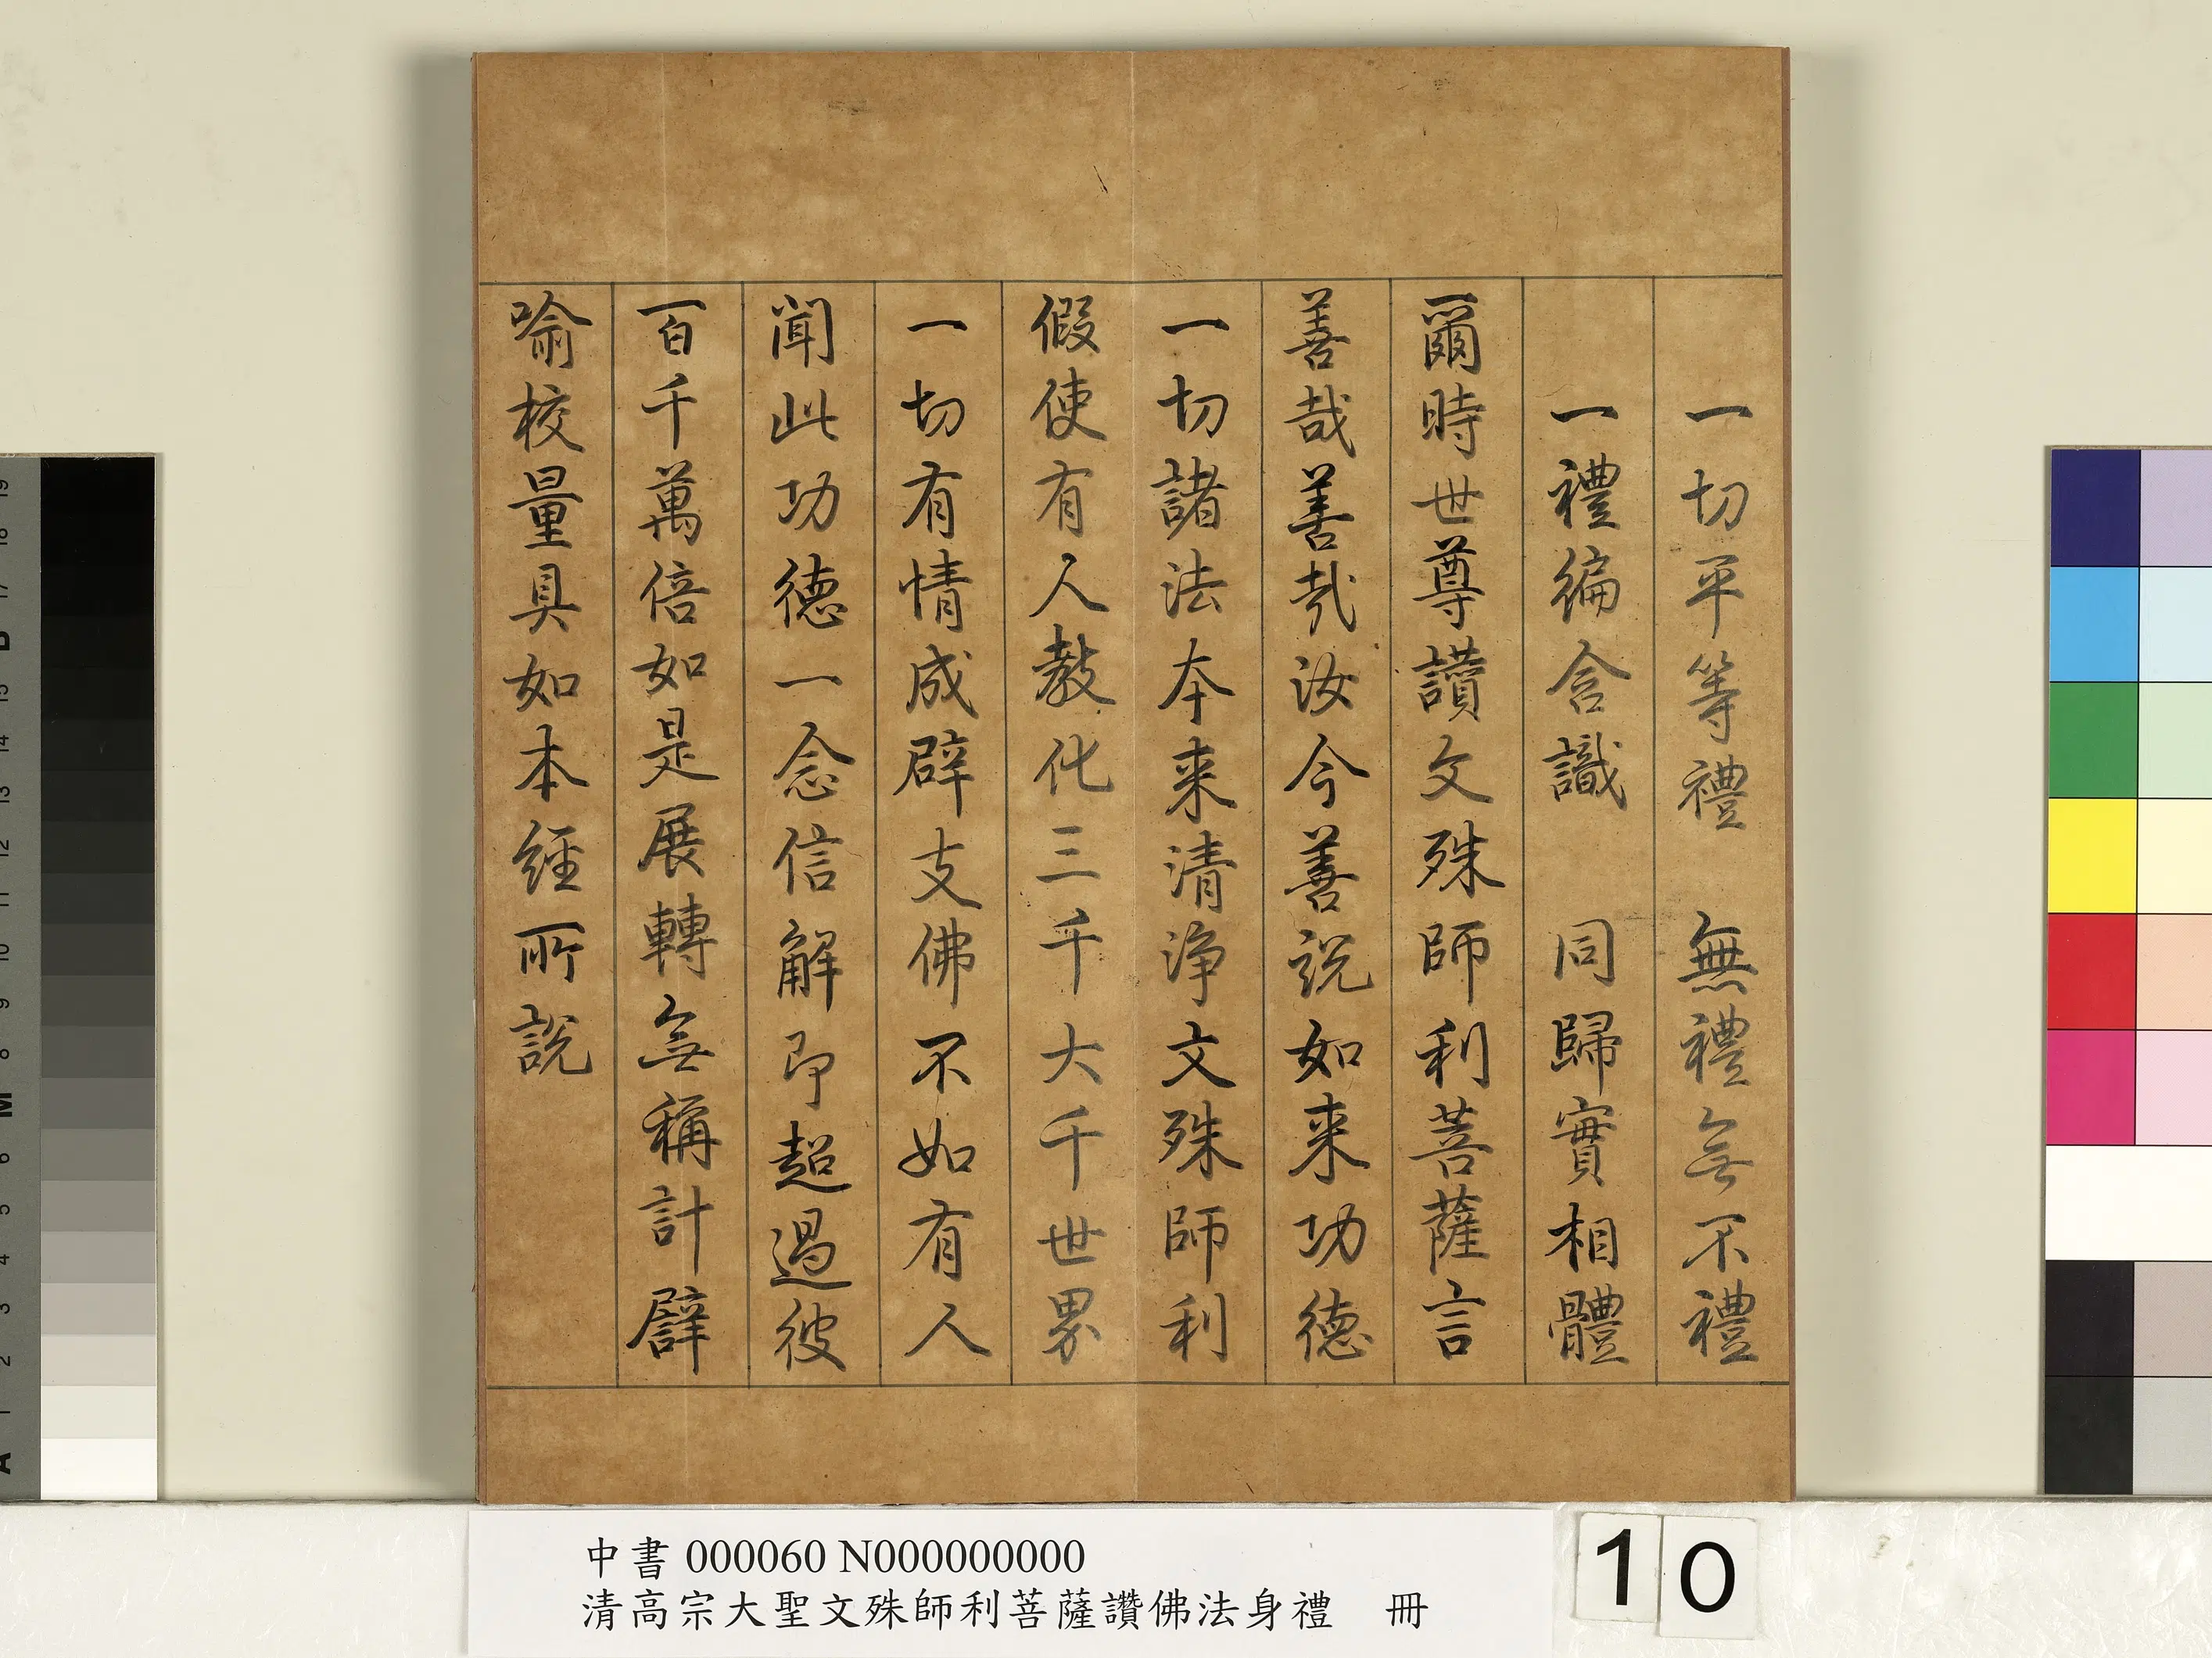 一切平等禮　無禮無不禮
一禮徧含識　同歸實相體
爾時世尊讚文殊師利菩薩言
善哉善哉汝今善說如来功德
一切諸法本来清淨文殊師利
假使有人教化三千大千世界
一切有情成辟支佛不如有人
聞此功德一念信解即超過彼
百千萬倍如是展轉無稱計譬
喻校量具如本經所說
中書 000060 N000000000
清高宗大聖文殊師利菩薩讚佛法身禮　冊
10
19
18
17
B
15
14
13
12
11
10
9
8
M
6
5
4
3
2
1
A